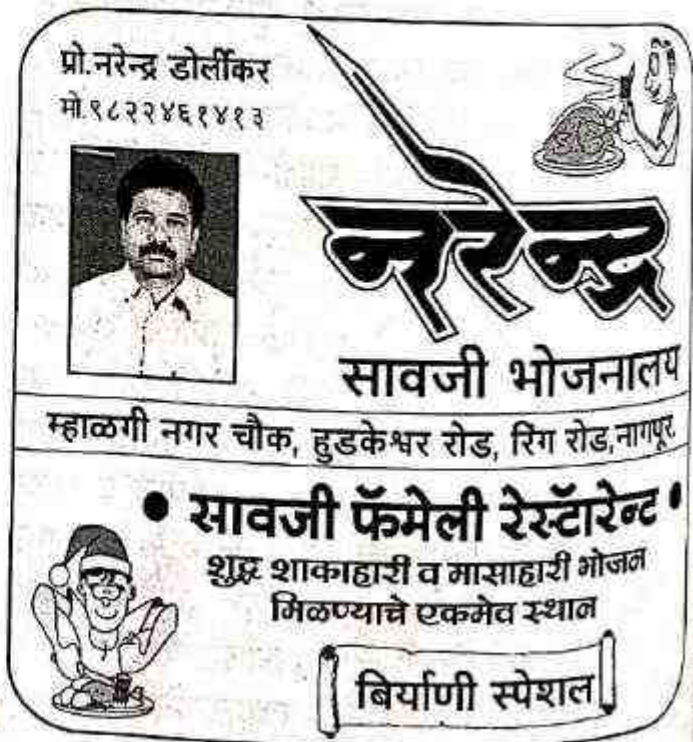 प्रो.नरेन्द्र डोर्लीकर
मो.९८२२४६१४१३
नरेन्द्र
सावजी भोजनालय
म्हाळगी नगर चौक, हुडकेश्वर रोड, रिंग रोड,नागपूर.
• सावजी फॅमेली रेस्टॉरेन्ट •
शुद्ध शाकाहारी व मासाहारी भोजन
मिळण्याचे एकमेव स्थान
बिर्याणी स्पेशल